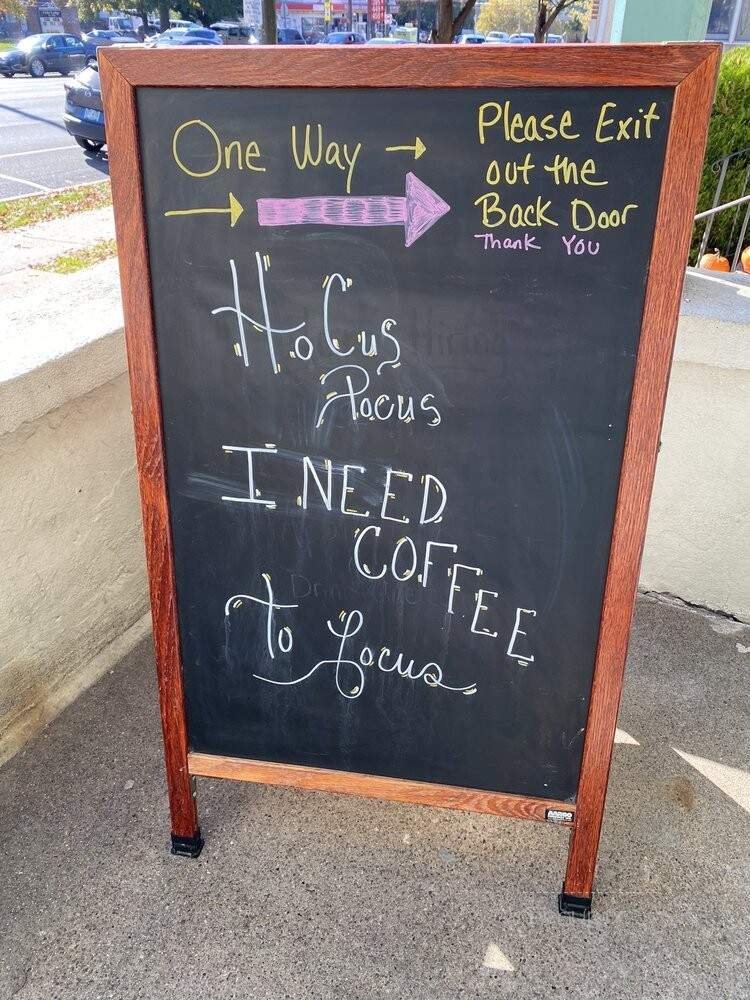 One Way →
→
Please Exit
out the
Back Door
Thank You
HoCus
Pocus
I NEED
COFFEE
To Focus
Hiring
AARCO